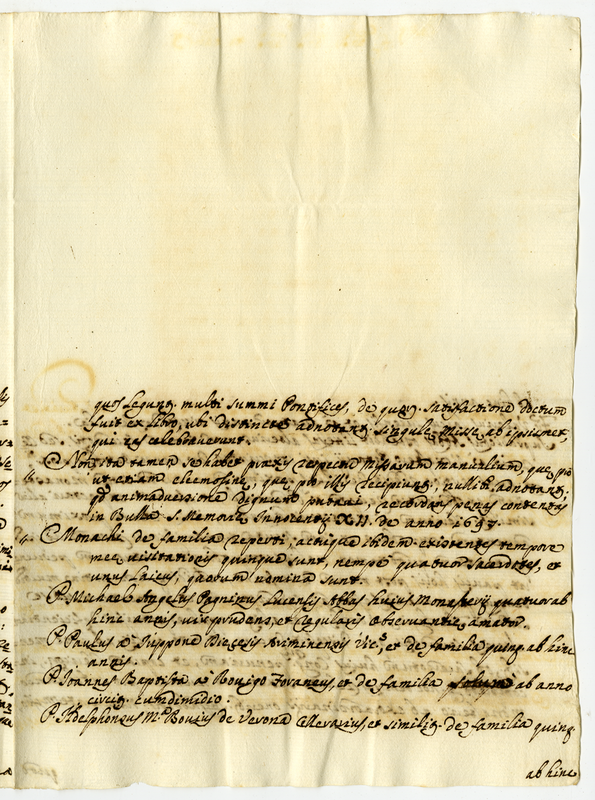 quos legunt. multi summi Pontifices, de quorum satisfactione doctum
fuit ex libro, ubi distincte adnotant. singulę Missę ab ipsismet,
qui eas celebraverunt.
Non ita tamen se habet praxis respectu missarum manualium, quę pro
ut etiam eleemosinę, quę pro illis recipiunt. nullibi adnotant.
qd animadversione dignum putavi, recordans penes contentis
in Bulla s. Memorię Innocentij XII. de anno 1697.
Monachi de familia reperti, actuque ibidem existentes tempore
meę visitationis quinque sunt, nempe quatuor sacerdotes, et
unus Laicus, quorum nomina sunt.
P. Michael Angelus Pagninus Lucensis Abbas huius Monasterij quatuor ab
hinc annis, vir prudens, et regularis observantię amator.
P. Paulus a Diecesis Ariminensis Vic.s, et de familia quinq. ab hinc
annis.
P. Joannes Baptista a Rovigo et de familia ab anno
circiter cum dimidio:
P. Ildelphonsus M.a Bovius de Verona Cellerarius, et similit. de familia quinq.
ab hinc